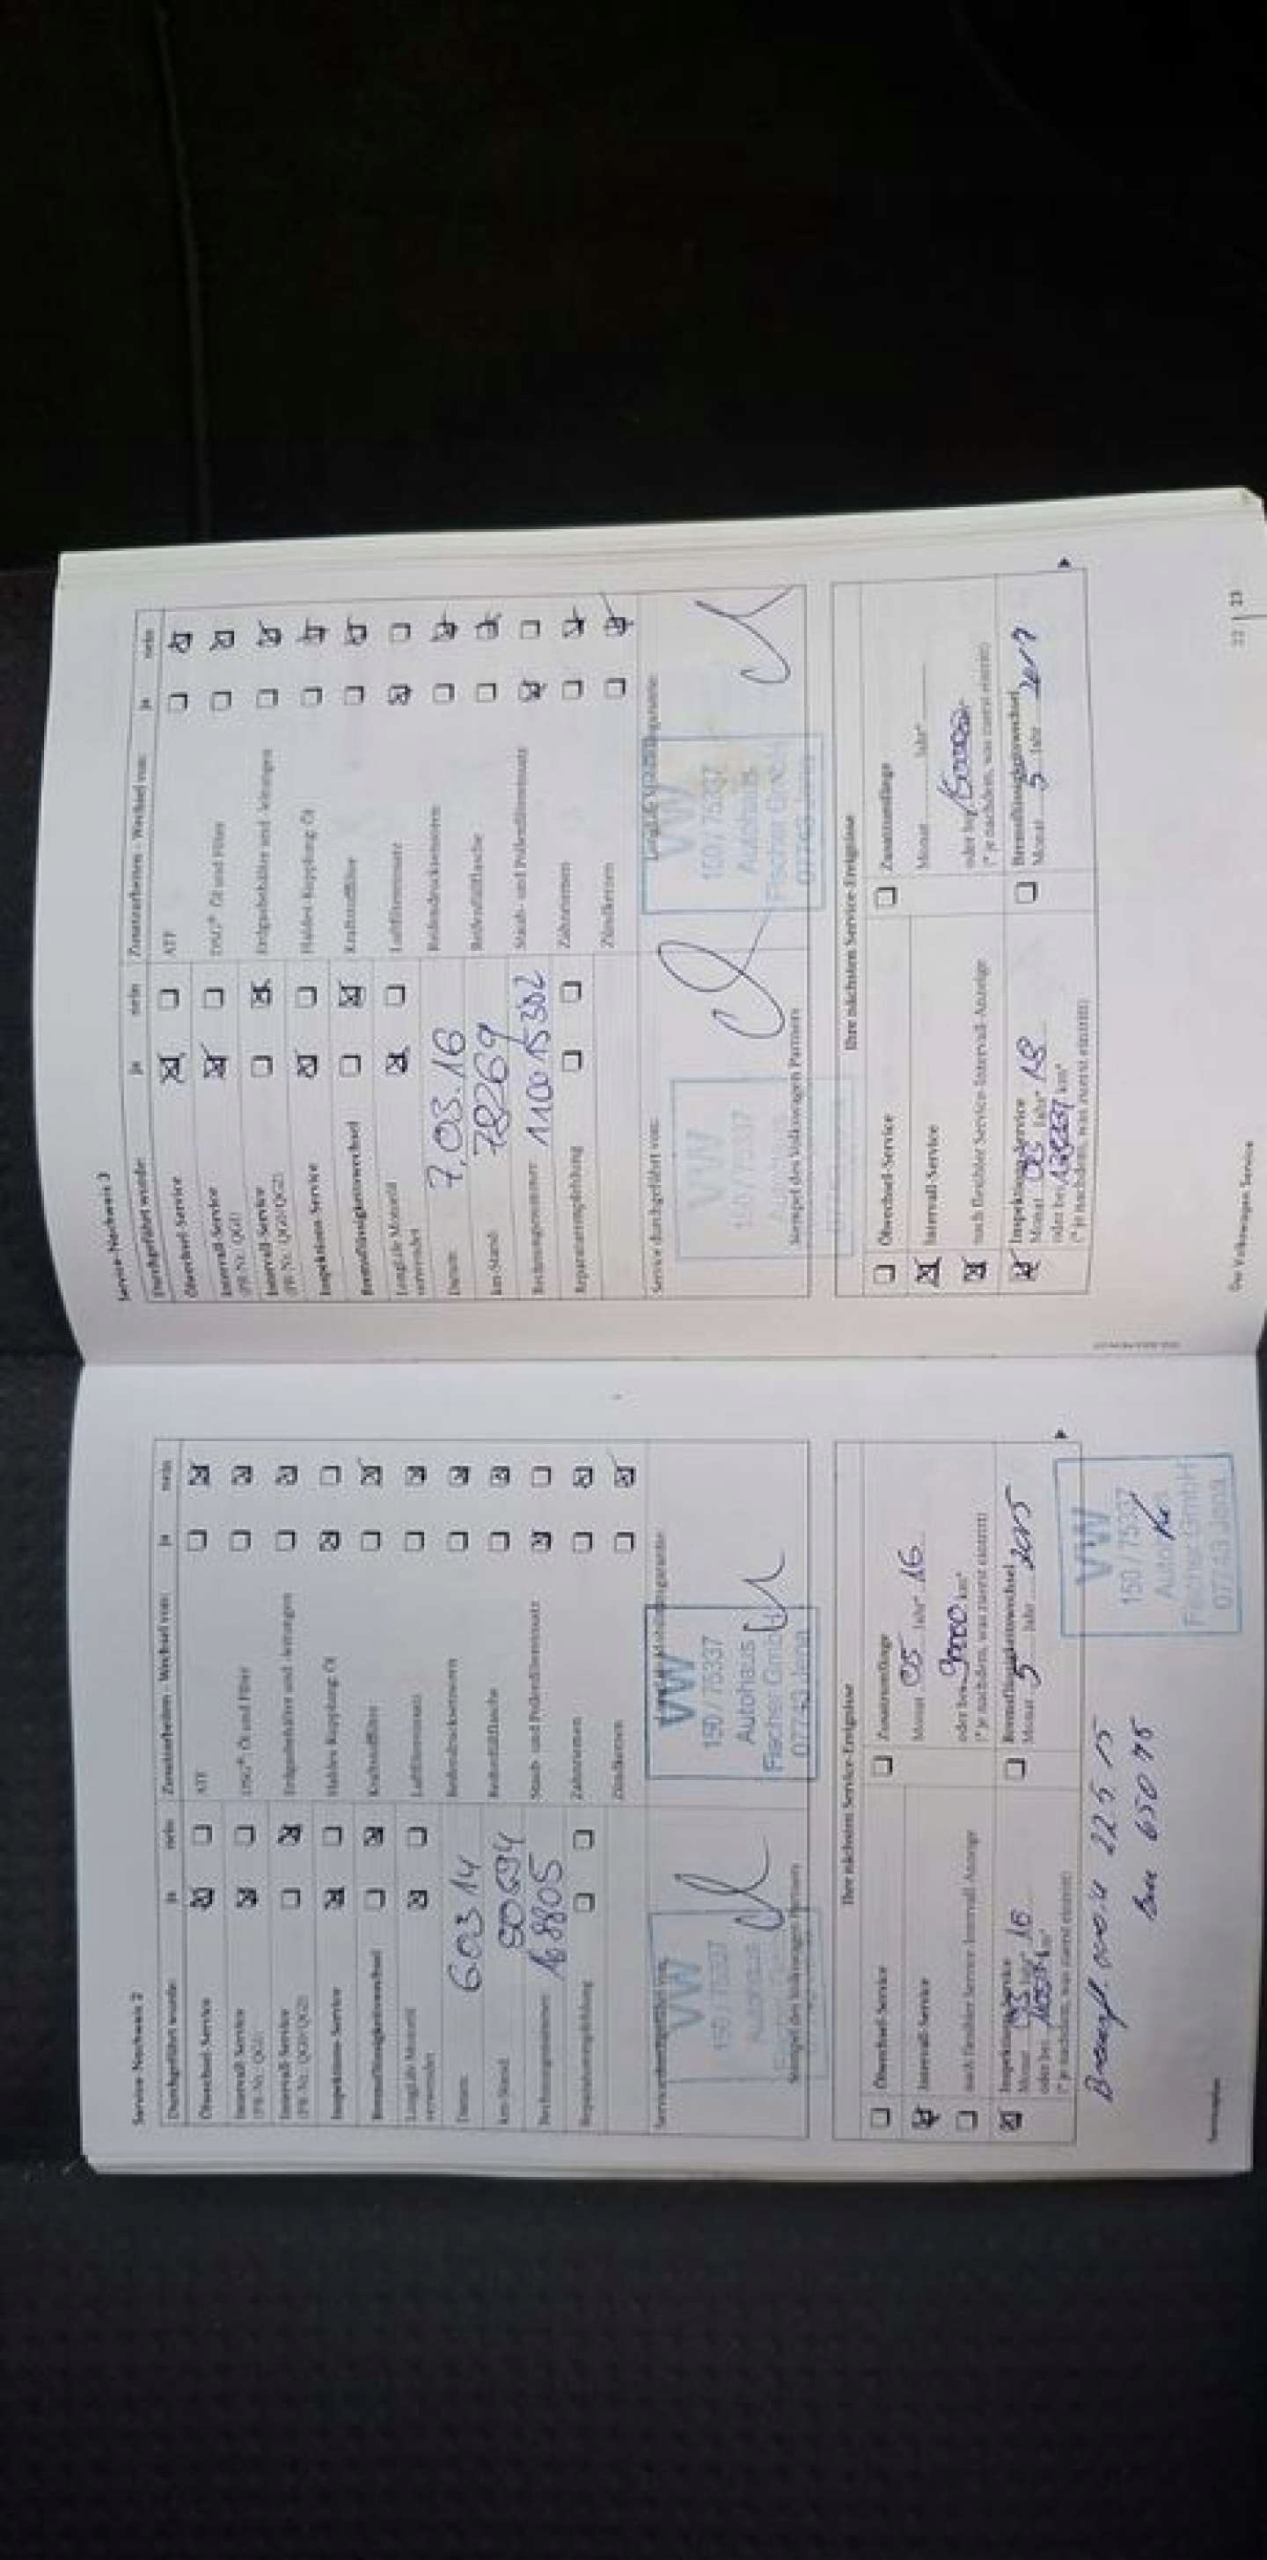 Service-Nachweis 2
Durchgeführt wurde: ja nein
Ölwechsel-Service
Intervall-Service
(PR-Nr. QG1)
Intervall-Service
(PR-Nr. QG0/QG2)
Inspektions-Service
Bremsflüssigkeitswechsel
LongLife-Motoröl
verwendet
Datum: 6 03 14
km-Stand: 50694
Rechnungsnummer: 168805
Reparaturempfehlung
Zusatzarbeiten - Wechsel von: ja nein
ATF
DSG® Öl und Filter
Erdgasbehälter und -leitungen
Haldex-Kupplung Öl
Kraftstofffilter
Luftfiltereinsatz
Reifendrucksensoren
Reifenfüllflasche
Staub- und Pollenfiltereinsatz
Zahnriemen
Zündkerzen
VW
150 / 75337
Autohaus
VW
150 / 75337
Autohaus
Fischer GmbH
07743 Jena
Stempel des Volkswagen Partners
Ihre nächsten Service-Ereignisse
Ölwechsel-Service
Intervall-Service
nach flexibler Service-Intervall-Anzeige
Inspektions-Service
Monat 03 Jahr* 16
oder bei km*
(* je nachdem, was zuerst eintritt)
Zusatzumfänge
Monat 05 Jahr* 16
oder bei 90000 km*
(* je nachdem, was zuerst eintritt)
Bremsflüssigkeitswechsel
Monat 5 Jahr 2015
22 5 15
65075
VW
150 / 75337
Fischer GmbH
07743 Jena
Service-Nachweis 3
Durchgeführt wurde: ja nein
Ölwechsel-Service
Intervall-Service
(PR-Nr. QG1)
Intervall-Service
(PR-Nr. QG0/QG2)
Inspektions-Service
Bremsflüssigkeitswechsel
LongLife-Motoröl
verwendet
Datum: 7.03.16
km-Stand: 78269
Rechnungsnummer: 110015382
Reparaturempfehlung
Zusatzarbeiten - Wechsel von: ja nein
ATF
DSG® Öl und Filter
Erdgasbehälter und -leitungen
Haldex-Kupplung Öl
Kraftstofffilter
Luftfiltereinsatz
Reifendrucksensoren
Reifenfüllflasche
Staub- und Pollenfiltereinsatz
Zahnriemen
Zündkerzen
Service durchgeführt von:
VW
150 / 75337
VW
150 / 75337
Autohaus
Fischer GmbH
07743 Jena
Stempel des Volkswagen Partners
Ihre nächsten Service-Ereignisse
Ölwechsel-Service
Intervall-Service
nach flexibler Service-Intervall-Anzeige
Inspektions-Service
Monat 03 Jahr* 18
oder bei km*
(* je nachdem, was zuerst eintritt)
Zusatzumfänge
Monat Jahr*
oder bei
(* je nachdem, was zuerst eintritt)
Bremsflüssigkeitswechsel
Monat 5 Jahr 2017
Der Volkswagen Service
22 | 23